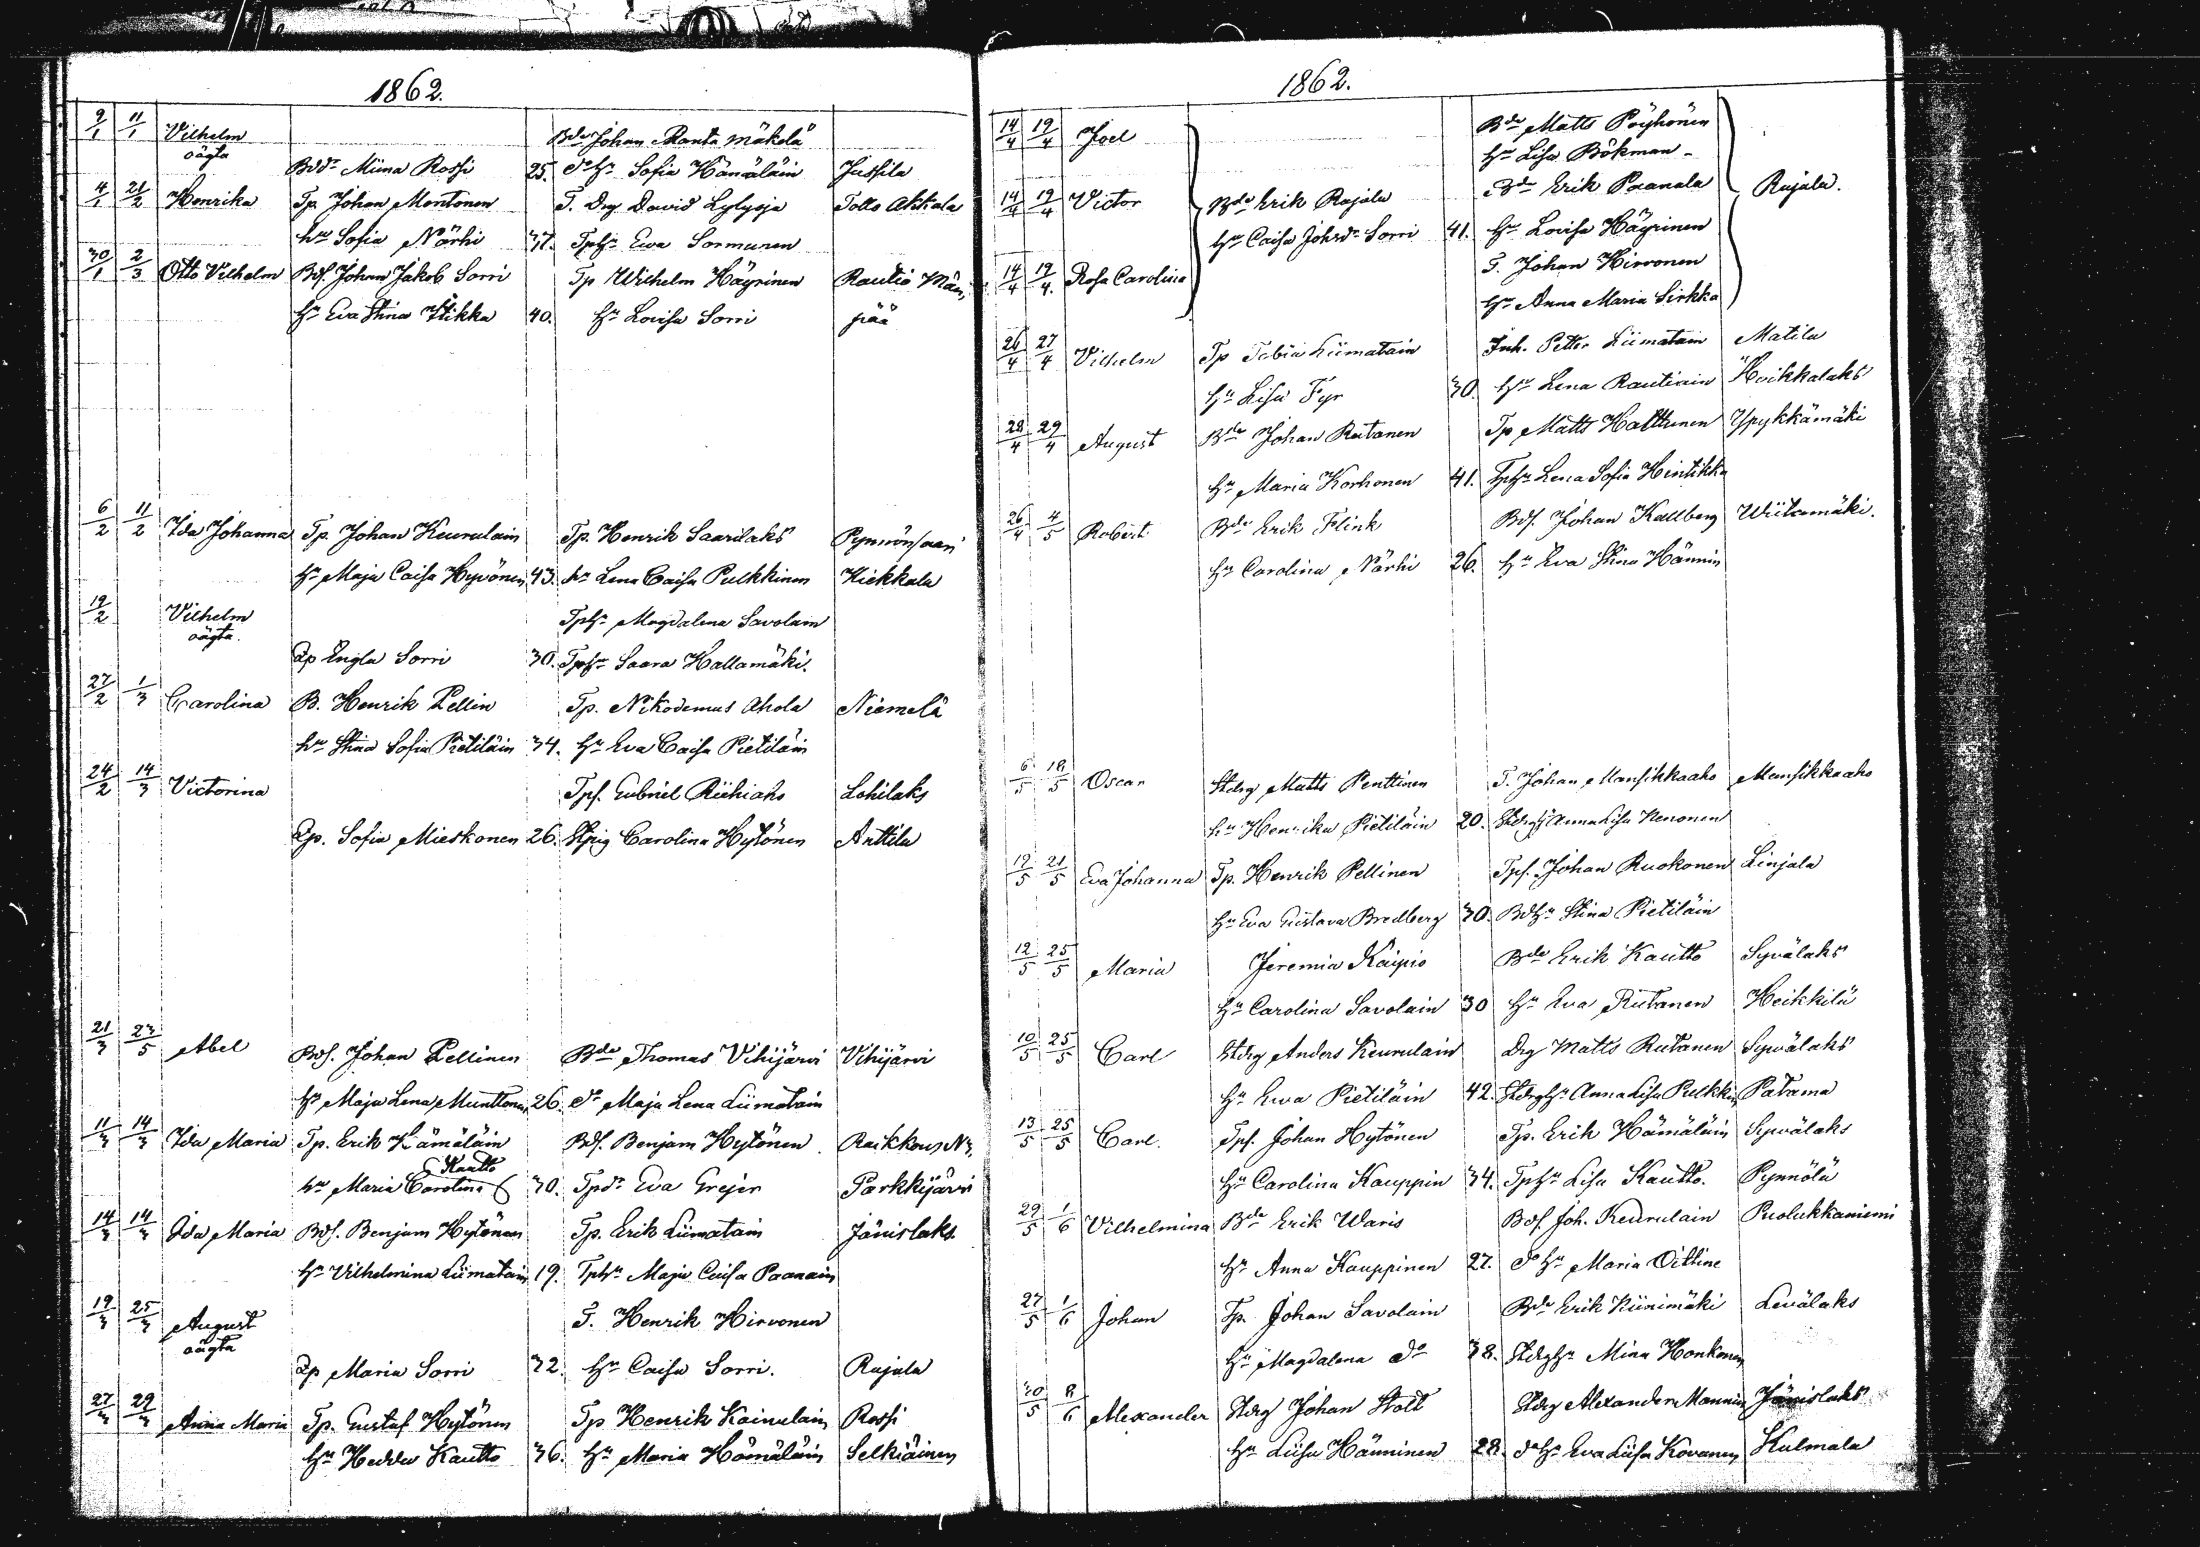 1862.
9/1 11/1 Vilhelm Bde Johan Ranta mäkelä
oägta
Bdd. Miina Rossi 25. do hu Sofia Hämäläin Jussila
4/1 21/2 Henrika Tp. Johan Montonen T. Drg David Lylyoja Tollo Ahkala
hu Sofia Närhi 37. Tphu Eva Sormunen
30/1 2/3 Otto Vilhelm Bds. Johan Jakob Sorri Tp Wilhelm Häyrinen Rautio Män,
hu Eva Stina Itikka 40. hu Lovisa Sorri pää
6/2 11/2 Ida Johanna Tp. Johan Keurulain Tp. Henrik Saarilaks Pynnönsaari
hu Maja Caisa Hyvönen 43. hu Lena Caisa Pulkkinen Kiekkala
19/2 Vilhelm Tphu Magdalena Savolain
oägta.
Qp Engla Sorri 30. Tphu Saara Hallamäki.
27/2 1/3 Carolina B. Henrik Pellin Tp. Nikodemus Ahola Niemelä
hu Stina Sofia Pietiläin 34. hu Eva Caisa Pietiläin
24/2 14/3 Victorina Tps. Gabriel Riihiaho Lohilaks
Qp. Sofia Mieskonen 26. Stpig Carolina Hytönen Anttila
21/3 23/5 Abel Bds. Johan Pellinen Bde Thomas Vihijärvi Vihijärvi
hu Maja Lena Munttonen 26. do Maja Lena Liimatain
11/3 14/3 Ida Maria Tp. Erik Hämäläin Bds. Benjam Hytönen Raikkous N3.
Kautto
hu Maria Carolina 30. Tpd. Eva Grejer Parkkijärvi
14/3 14/3 Ida Maria Bds. Benjam Hytönen Tp. Erik Liimatain Jänislaks.
hu Vilhelmina Liimatain 19. Tphu Maja Caisa Paanain
19/3 25/3 August T. Henrik Hirvonen
oägta
Qp Maria Sorri 32. hu Caisa Sorri. Rajala
27/3 29/3 Anna Maria Tp. Gustaf Hytönen Tp Henrik Kainulain Rossi
hu Hedda Kautto 36. hu Maria Hämäläin Selkiäinen
1862.
14/4 19/4 Joel Bde Matts Pöyhönen
hu Lisa Bökman
14/4 19/4 Victor Bde Erik Rajala Bde Erik Paanala Rajala.
hu Caisa Johsdr Sorri 41. hu Lovisa Häyrinen
14/4 19/4. Rosa Carolina T. Johan Hirvonen
hu Anna Maria Sirkka
26/4 27/4 Vilhelm Tp Tobia Liimatain Inh. Petter Liimatain Matila
hu Lisa Fyr 30. hu Lena Rautiain Hoikkalaks
28/4 29/4 August Bde Johan Rutanen Tp Matts Halttunen Ypykkämäki
hu Maria Korhonen 41. Tphu Lena Sofia Hintikka
26/4 4/5 Robert Bde Erik Flink Bds. Johan Kallberg Wiitamäki.
hu Carolina Närhi 26. hu Eva Stina Hännin
6/5 18/5 Oscar Stdrg Matts Penttinen T. Johan Mansikkaaho Mansikkaaho
hu Henrika Pietiläin 20. Anna Lisa Nenonen
19/5 21/5 Eva Johanna Tp. Henrik Pellinen Tps. Johan Ruokonen Linjala
hu Eva Gustava Bredberg 30. Bdhu Stina Pietiläin
12/5 25/5 Maria Jeremia Kaipio Bde Erik Kautto Syvälaks
hu Carolina Savolain 30 hu Eva Rutanen Heikkilä
10/5 25/5 Carl Stdrg Anders Keurulain Drg Matts Rutanen Syvälaks
hu Ewa Pietiläin 42. Stdrghu Anna Lisa Pulkkin Patama
13/5 25/5 Carl. Tps. Johan Hytönen Tp. Erik Hämäläin Syvälaks
hu Carolina Kauppin 34. Tphu Lisa Kautto. Pynnölä
29/5 1/6 Vilhelmina Bde Erik Waris Bds. Joh. Keurulain Puolukkaniemi
hu Anna Kauppinen 27. do hu Maria Oittine
27/5 1/6 Johan Tp. Johan Savolain Bde Erik Kiinimäki Levälaks
hu Magdalena do 38. Stdrghu Mina Honkonen
30/5 8/6 Alexander Stdrg Johan Stolt Stdrg Alexander Mannin Jänislaks
hu Liisa Hänninen 28. do hu Eva Liisa Kovanen Kulmala